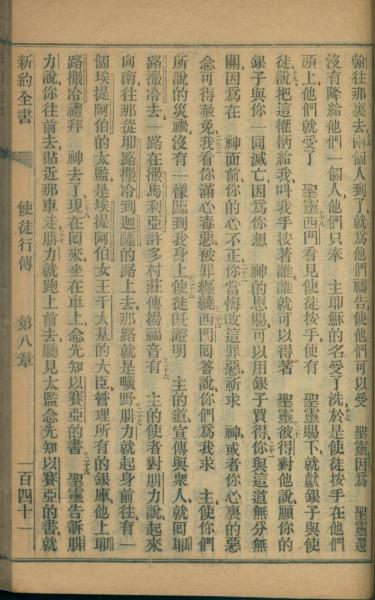 翰往那裏去兩個人到了就爲他們禱告使他們可以受　聖靈因爲　聖靈還
沒有降給他們一個人他們只奉　主耶穌的名受了洗於是使徒按手在他們
頭上他們就受了　聖靈西門看見使徒按手便有　聖靈賜下就獻銀子與使
徒說把這權柄給我叫我手按着誰誰就可以得着　聖靈彼得對他說願你的
銀子與你一同滅亡因爲你想　神的恩賜可以用銀子買得你與這道無分無
關因爲在　神面前你的心不正你當悔改這罪惡祈求　神或者你心裏的惡
念可得赦免我看你滿心毒惡被罪經繞西門回答說你們爲我求　主使你們
所說的災禍沒有一樣臨到我身上使徒旣證明　主的道宣傳與衆人就回耶
路撒冷去一路在撒馬利亞許多村莊傳揚福音有　主的使者對腓力說起來
向南往那從耶路撒冷到迦薩的路上去那路就是曠野腓力就起身前往有一
個埃提阿伯的太監是埃提阿伯女王干大基的大臣管理所有的銀庫他上耶
路撒冷禮拜　神去了現在回來坐在車上念先知以賽亞的書　聖靈告訴腓
力說你往前去貼近那車走腓力就跑上前去聽見太監念先知以賽亞的書就
新約全書　使徒行傳　第八章　一百四十一